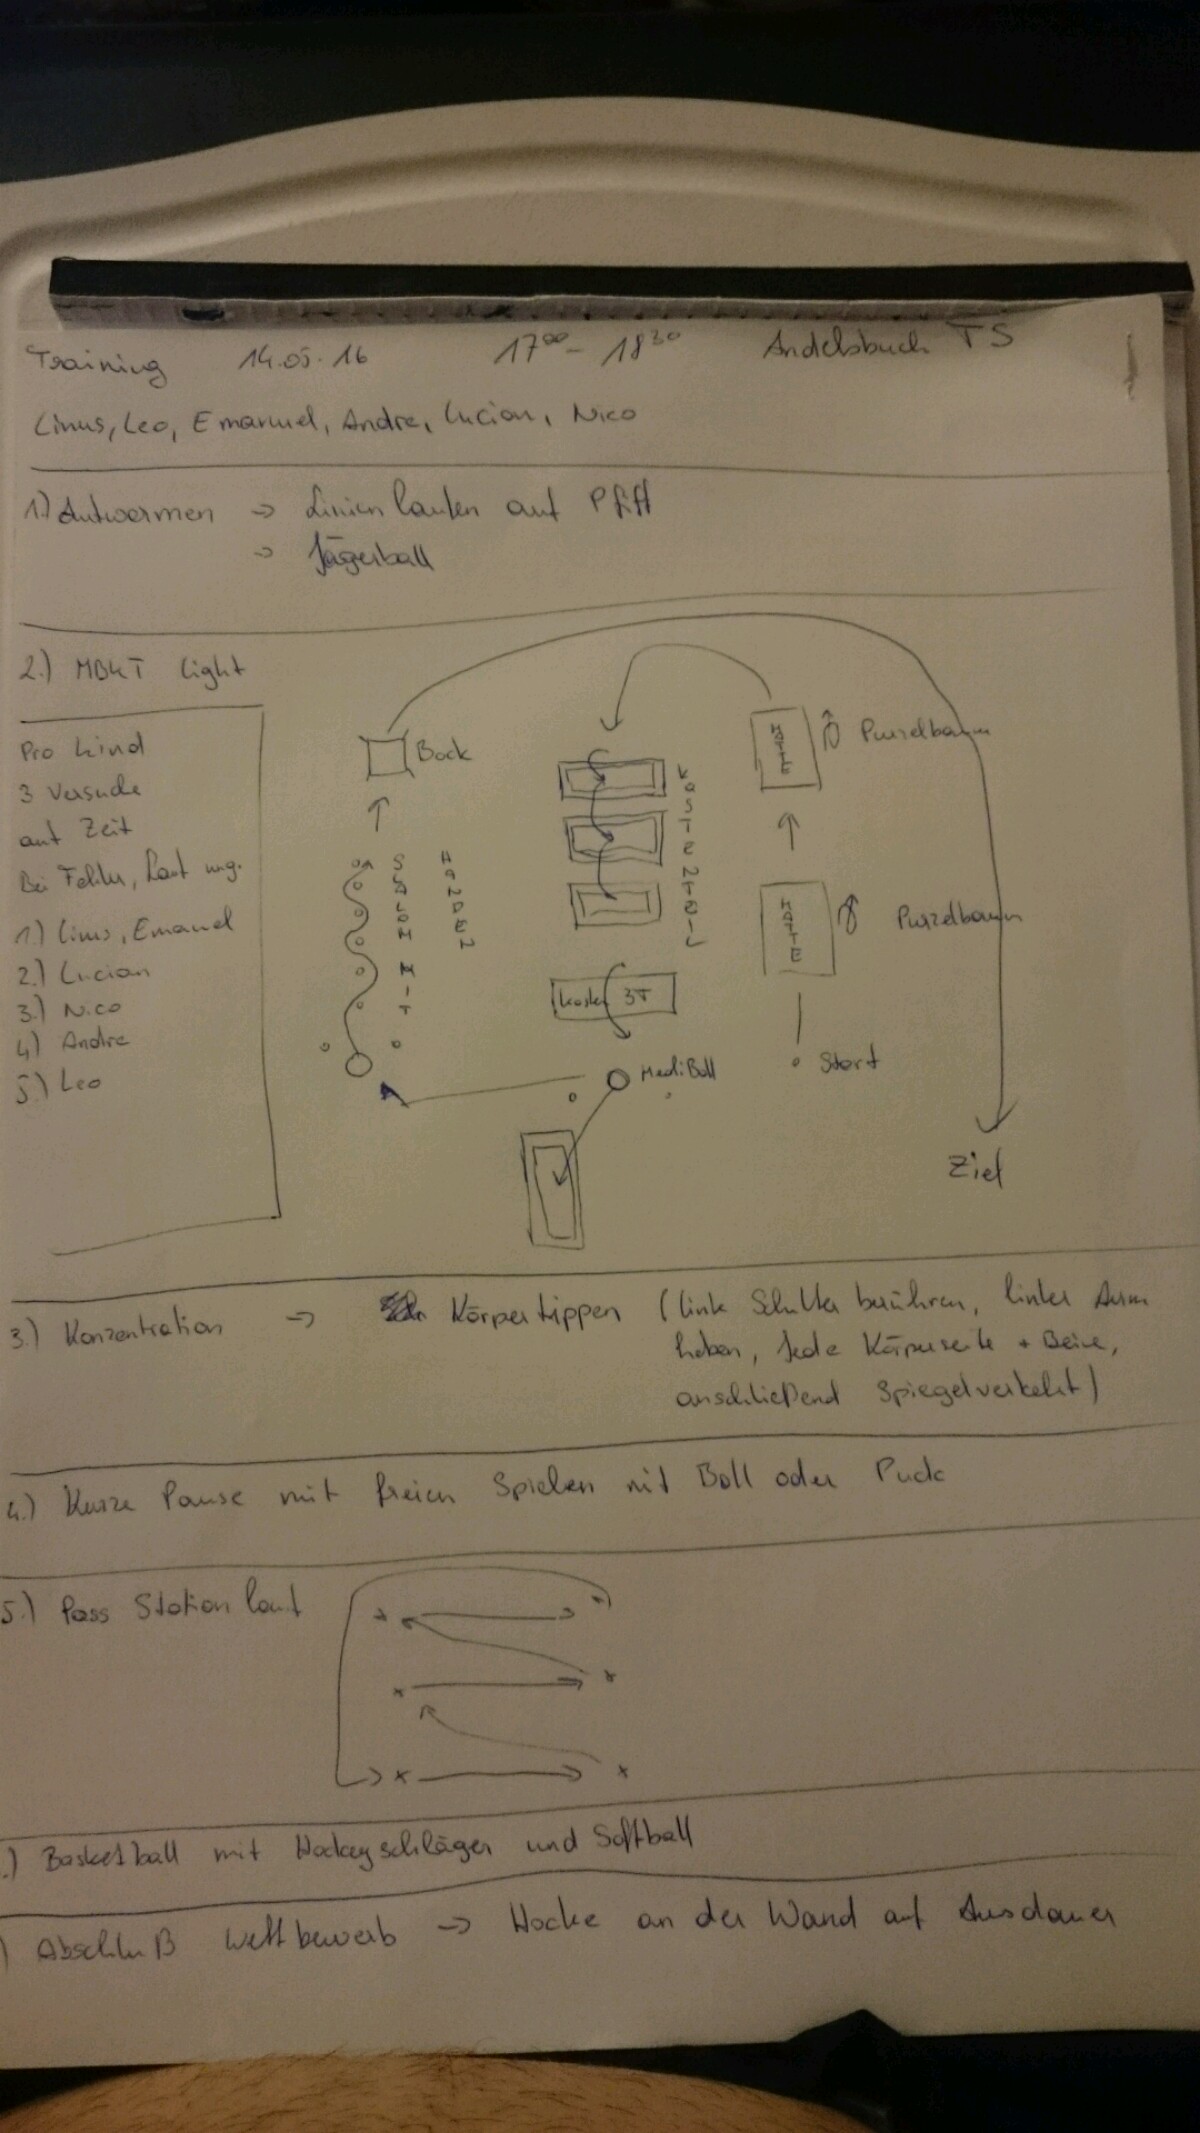 Training 14.05.16 17⁰⁰ - 18³⁰ Andelsbuch TS
Linus, Leo, Emanuel, Andre, Lucian, Nico
1.) Aufwärmen → Linien laufen auf Pfiff
→ Jägerball
2.) MBKT light
Pro Kind
3 Versuche
auf Zeit
Bei Fehler, Lauf ung.
1.) Linus, Emanuel
2.) Lucian
3.) Nico
4.) Andre
5.) Leo
Bock
SLALOM MIT
HÄNDEN
KASTENTEIL
Kasten 3T
MediBall
MATTE
Purzelbaum
MATTE
Purzelbaum
Start
Ziel
3.) Konzentration → Körpertippen (link Schulter berühren, linker Arm
heben, jede Körperseite + Beine,
anschließend Spiegelverkehrt)
4.) Kurze Pause mit freien Spielen mit Ball oder Puck
5.) Pass Station lauf
.) Basketball mit Hockeyschläger und Softball
) Abschluß Wettbewerb → Hocke an der Wand auf Ausdauer